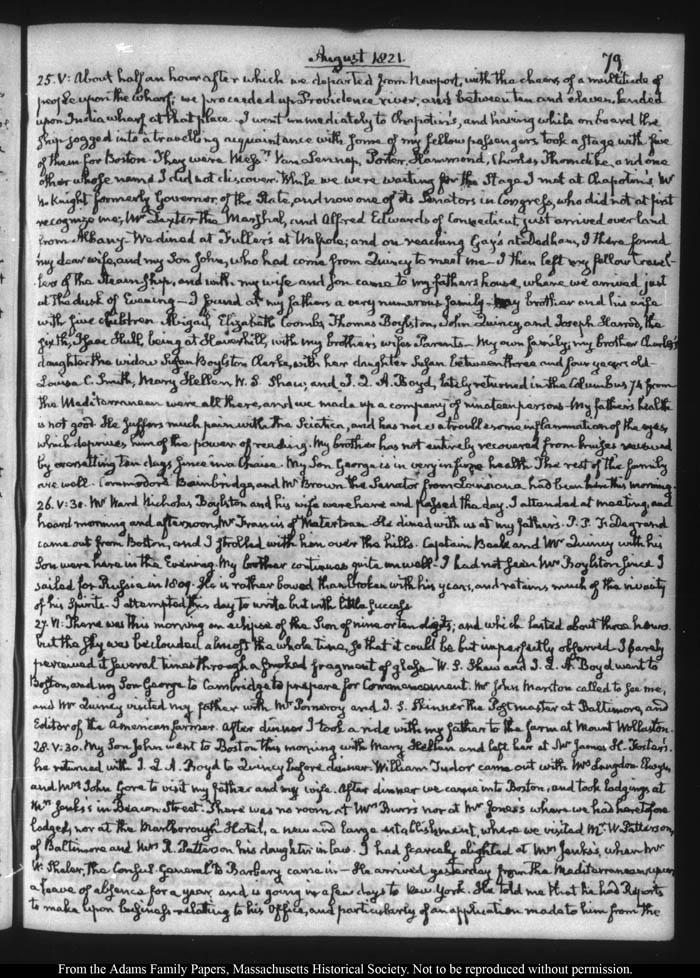 August 1821.
79
25. V: About half an hour after which we departed from Newport, with the cheers of a multitude of
people upon the wharf; we proceeded up Providence river, and between ten and eleven, landed
upon India wharf at that place. I went immediately to Chapotin's, and having while on board the
Ship jogged into a travelling acquaintance with some of my fellow passengers took a Stage with five
of them for Boston. They were Messrs Van Lennep, Porter, Hammond, Charles Thorndike, and one
other whose name I did not discover. While we were waiting for the Stage I met at Chapotin's Mr
N. Knight formerly Governor, of the State, and now one of its Senators in Congress, who did not at first
recognize me; Mr Dexter the Marshal, and Alfred Edwards of Connecticut, just arrived over land
from Albany. We dined at Fuller's at Walpole; and on reaching Gay's at Dedham, I there found
my dear wife, and my Son John, who had come from Quincy to meet me. I then left my fellow travel-
lers of the Steam Ship, and with my wife and Son came to my father's house, where we arrived just
at the dusk of Evening. I found at my father's a very numerous family. My brother and his wife
with five children Abigail, Elizabeth Coombs, Thomas Boylston, John Quincy, and Joseph Harrod, the
sixth, Isaac Hull being at Haverhill, with my brother's wife's Parents. My own family; my brother Charles's
daughter the widow Susan Boylston Clarke, with her daughter Susan between three and four years old
Louisa C. Smith, Mary Hellen, W. S. Shaw, and J. Q. A. Boyd, lately returned in the Columbus 74 from
the Mediterranean were all there, and we made up a company of nineteen persons. My father's health
is not good. He suffers much pain with the Sciatica, and has now a troublesome inflammation of the eyes,
which deprives him of the power of reading. My brother has not entirely recovered from bruises received
by oversetting ten days since in a chaise. My Son George is in very infirm health. The rest of the family
are well. Commodore Bainbridge, and Mr Brown the Senator from Louisiana had been here this morning.
26. V:30. Mr Ward Nicholas Boylston and his wife were here and passed the day. I attended at meeting, and
heard morning and afternoon, Mr Francis of Watertown. He dined with us at my father's. P. P. F. Degrand
came out from Boston, and I strolled with him over the hills. Captain Beale and Mr Quincy with his
Son were here in the Evening. My brother continues quite unwell. I had not seen Mr Boylston since I
sailed for Russia in 1809. He is rather bowed than broken with his years, and retains much of the vivacity
of his Spirits. I attempted this day to write but with little success.
27. VI: There was this morning an eclipse of the Sun of nine or ten digits; and which lasted about three hours.
but the sky was beclouded almost the whole time, so that it could be but imperfectly observed. I barely
perceived it several times through a smoked fragment of glass. W. S. Shaw and J. Q. A. Boyd went to
Boston, and my Son George to Cambridge to prepare for Commencement. Mr John Marston called to see me,
and Mr Quincy visited my father with Mr Pomeroy and J. S. Skinner the Postmaster at Baltimore, and
Editor of the American farmer. After dinner I took a ride with my father to the farm at Mount Wollaston.
28. V:30. My Son John went to Boston this morning with Mary Hellen and left her at Mr James H. Foster's.
he returned with J. Q. A. Boyd to Quincy before dinner. William Tudor came out with Mrs Langdon Elwyn,
and Mrs John Gore to visit my father and my wife. After dinner we came into Boston, and took lodgings at
Mrs Jenks's in Beacon Street. There was no room at Mrs Burr's nor at Mr Jones's where we had heretofore
lodged, nor at the Marlborough Hotel, a new and large establishment, where we visited Mr W. Patterson,
of Baltimore and Mrs R. Patterson his daughter in law. I had scarcely alighted at Mrs Jenks's, when Mr
W. Shaler, the Consul General to Barbary came in. He arrived yesterday from the Mediterranean upon
a leave of absence for a year, and is going in a few days to New York. He told me that he had Reports
to make upon business relating to his Office, and particularly of an application made to him from the
From the Adams Family Papers, Massachusetts Historical Society. Not to be reproduced without permission.